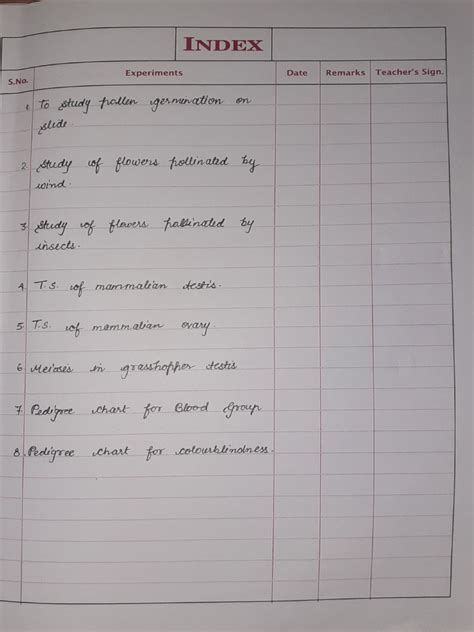 INDEX
S.No. Experiments Date Remarks Teacher's Sign.
1. To study pollen germination on
slide.
2. Study of flowers pollinated by
wind.
3. Study of flowers pollinated by
insects.
4. T.S. of mammalian testis.
5. T.S. of mammalian ovary.
6. Meioses in grasshopper testis
7. Pedigree chart for Blood Group
8. Pedigree chart for colourblindness.